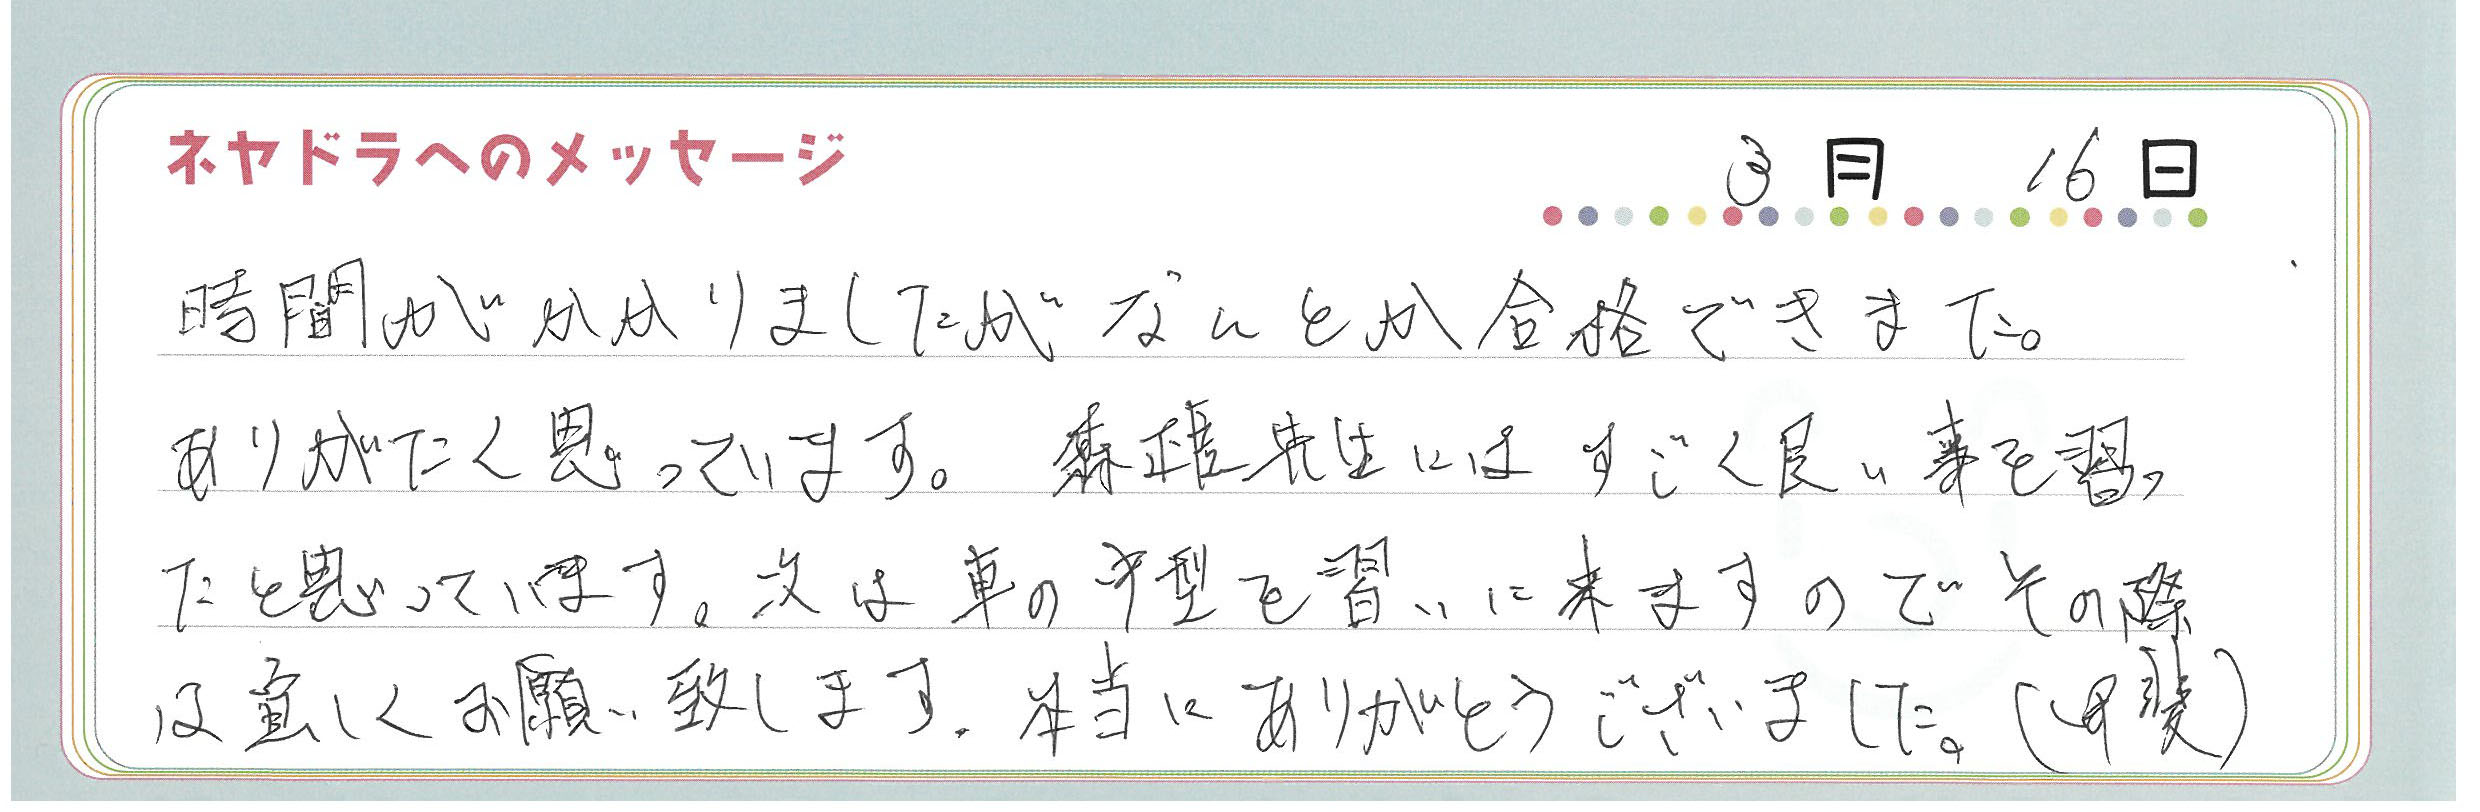 ネヤドラへのメッセージ
3月 16日
時間がかかりましたがなんとか合格できまた。
ありがたく思っています。 先生にはすごく良い事を習っ
たと思っています。次は車の 型を習いに来ますのでその際
は宜しくお願い致します。本当にありがとうございました。(甲斐)